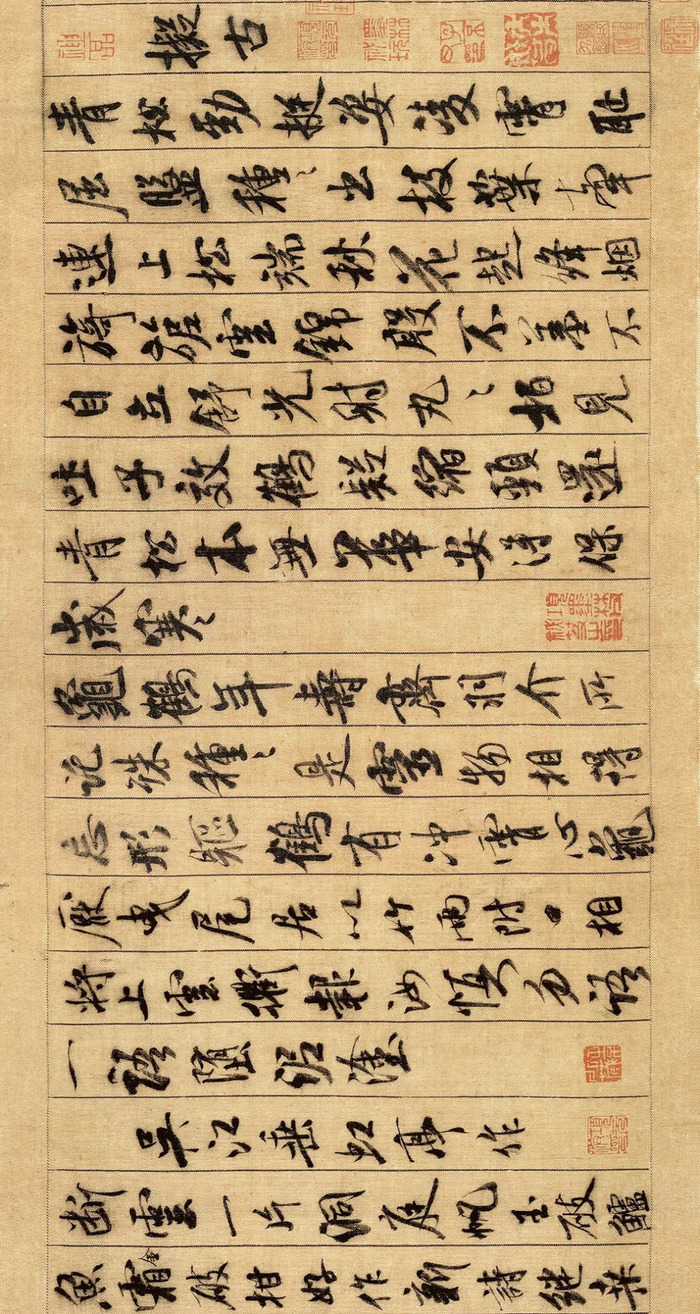 擬古
青松勁挺姿凌霄耻
屈盤種〻出枝葉牽
連上松端秋花起絳烟
旖旎雲錦殷不羞不
自立舒光射丸〻柏見
吐子效鶴疑縮頸還
青松本無華安得保
歲寒
龜鶴年壽齊羽介所
託殊種〻是靈物相得
忘形軀鶴有沖霄心龜
厭曳尾居以竹兩附口相
將上雲衢報汝慎勿語
一語墮泥塗
吳江垂虹亭作
斷雲一片洞庭帆玉破鱸
魚霜金破柑好作新詩繼桑